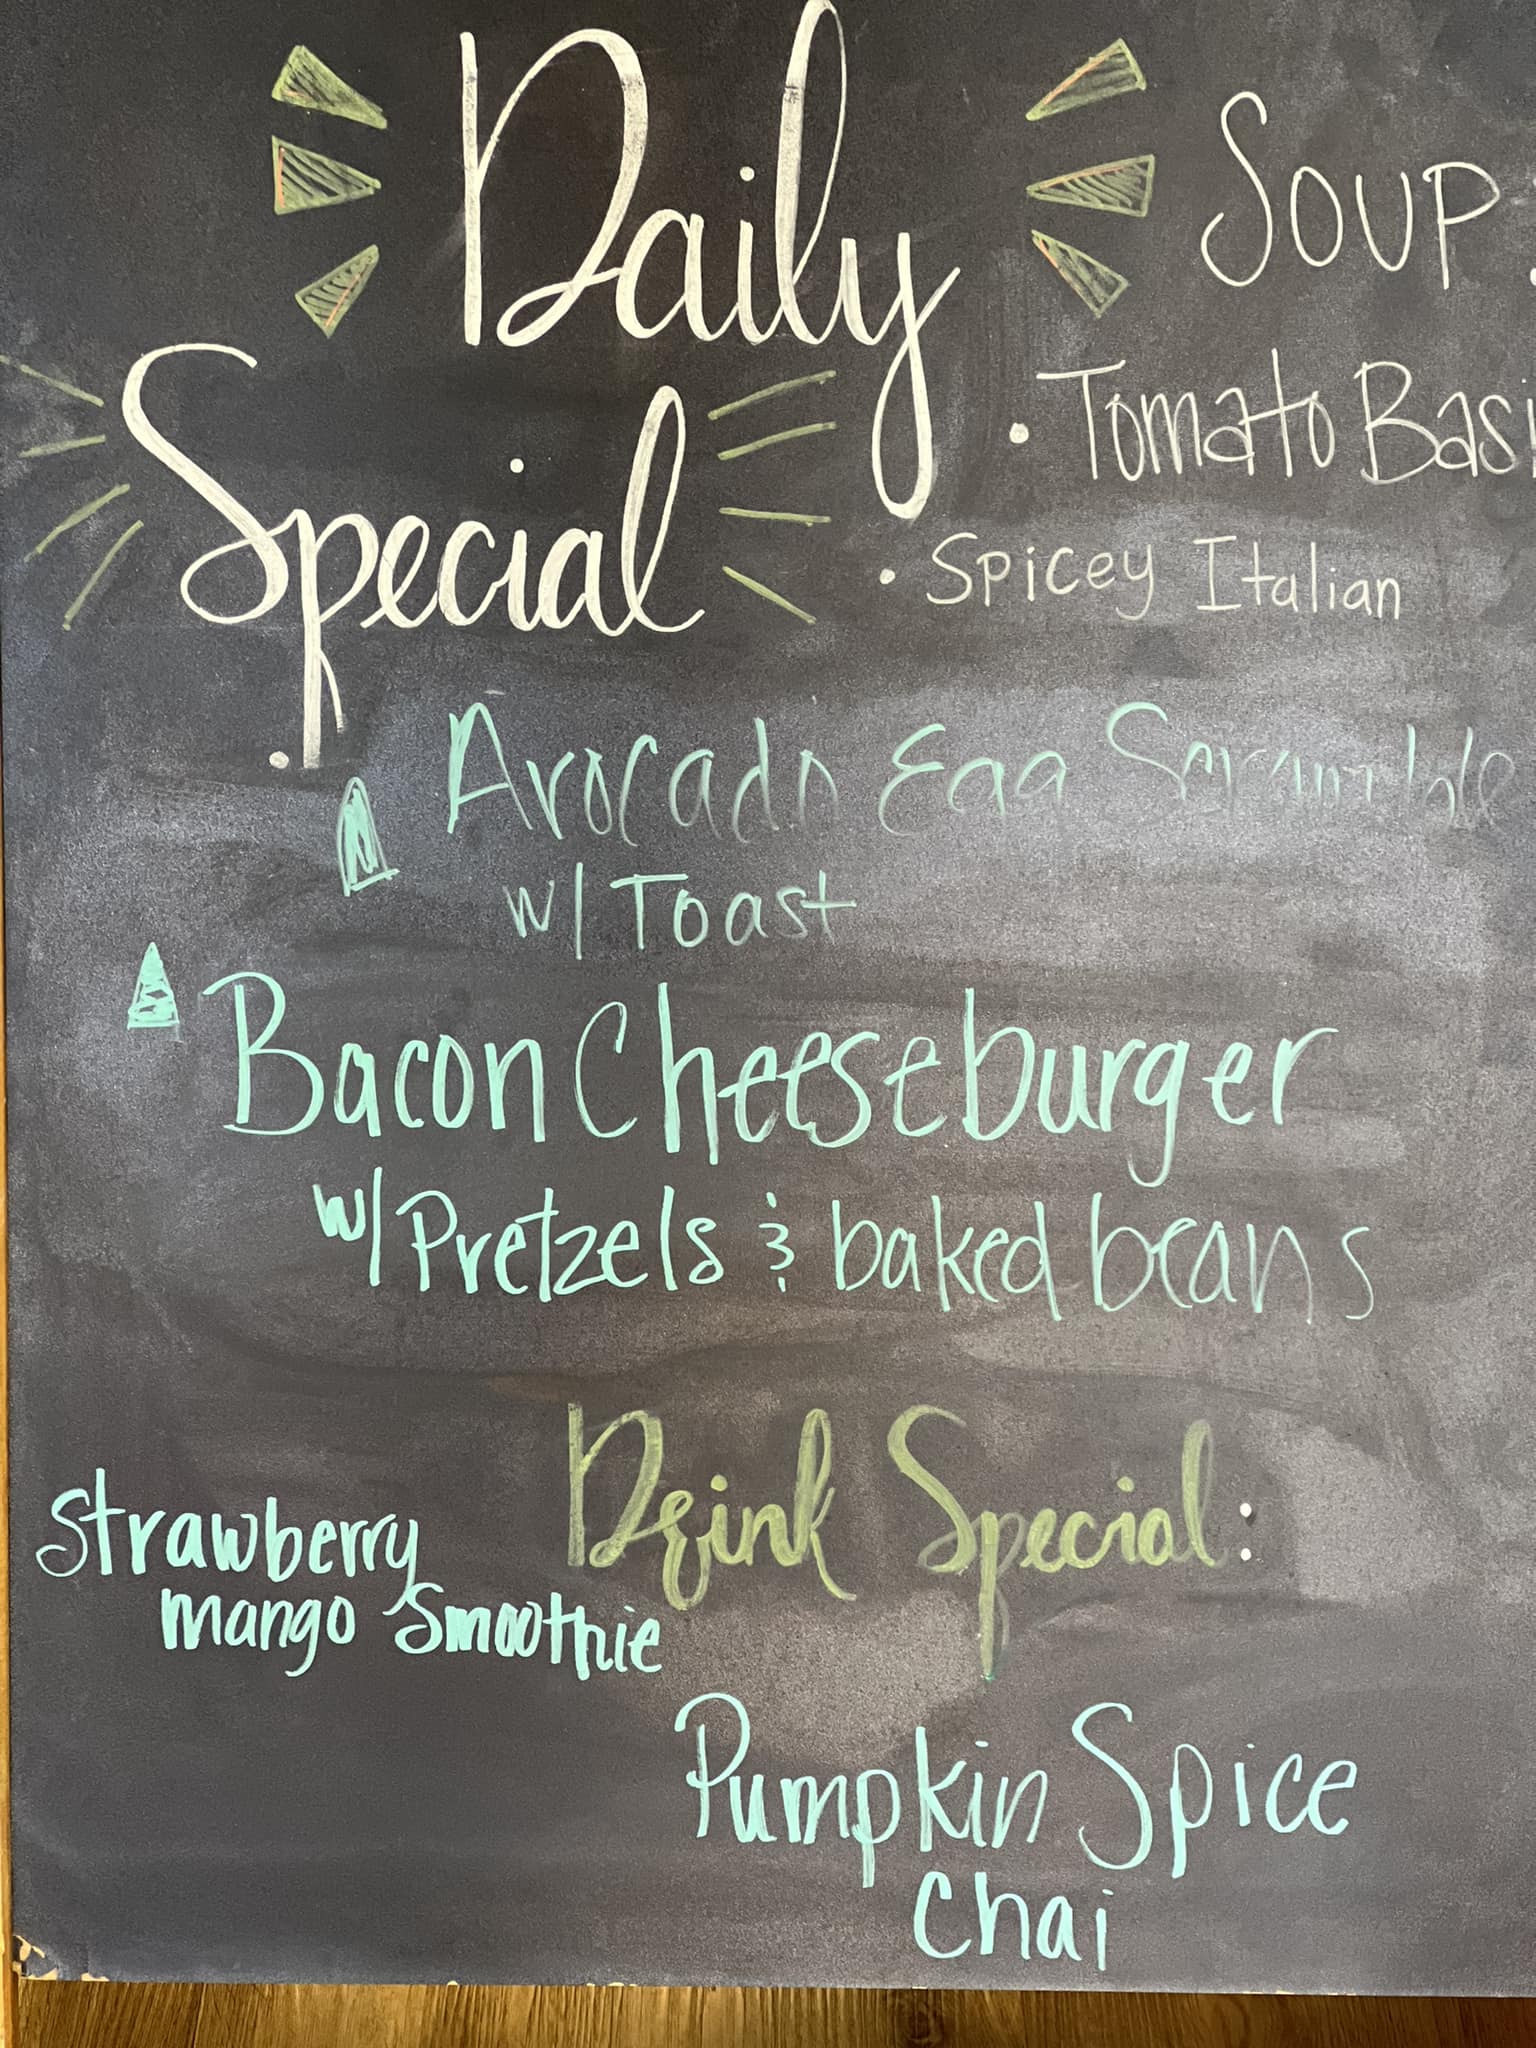 Daily
Special
Soup
• Tomato Basi
• Spicey Italian
Avocado Egg Scramble
w/ Toast
Bacon Cheeseburger
w/ Pretzels & baked beans
Drink Special:
Strawberry
mango Smoothie
Pumpkin Spice
Chai